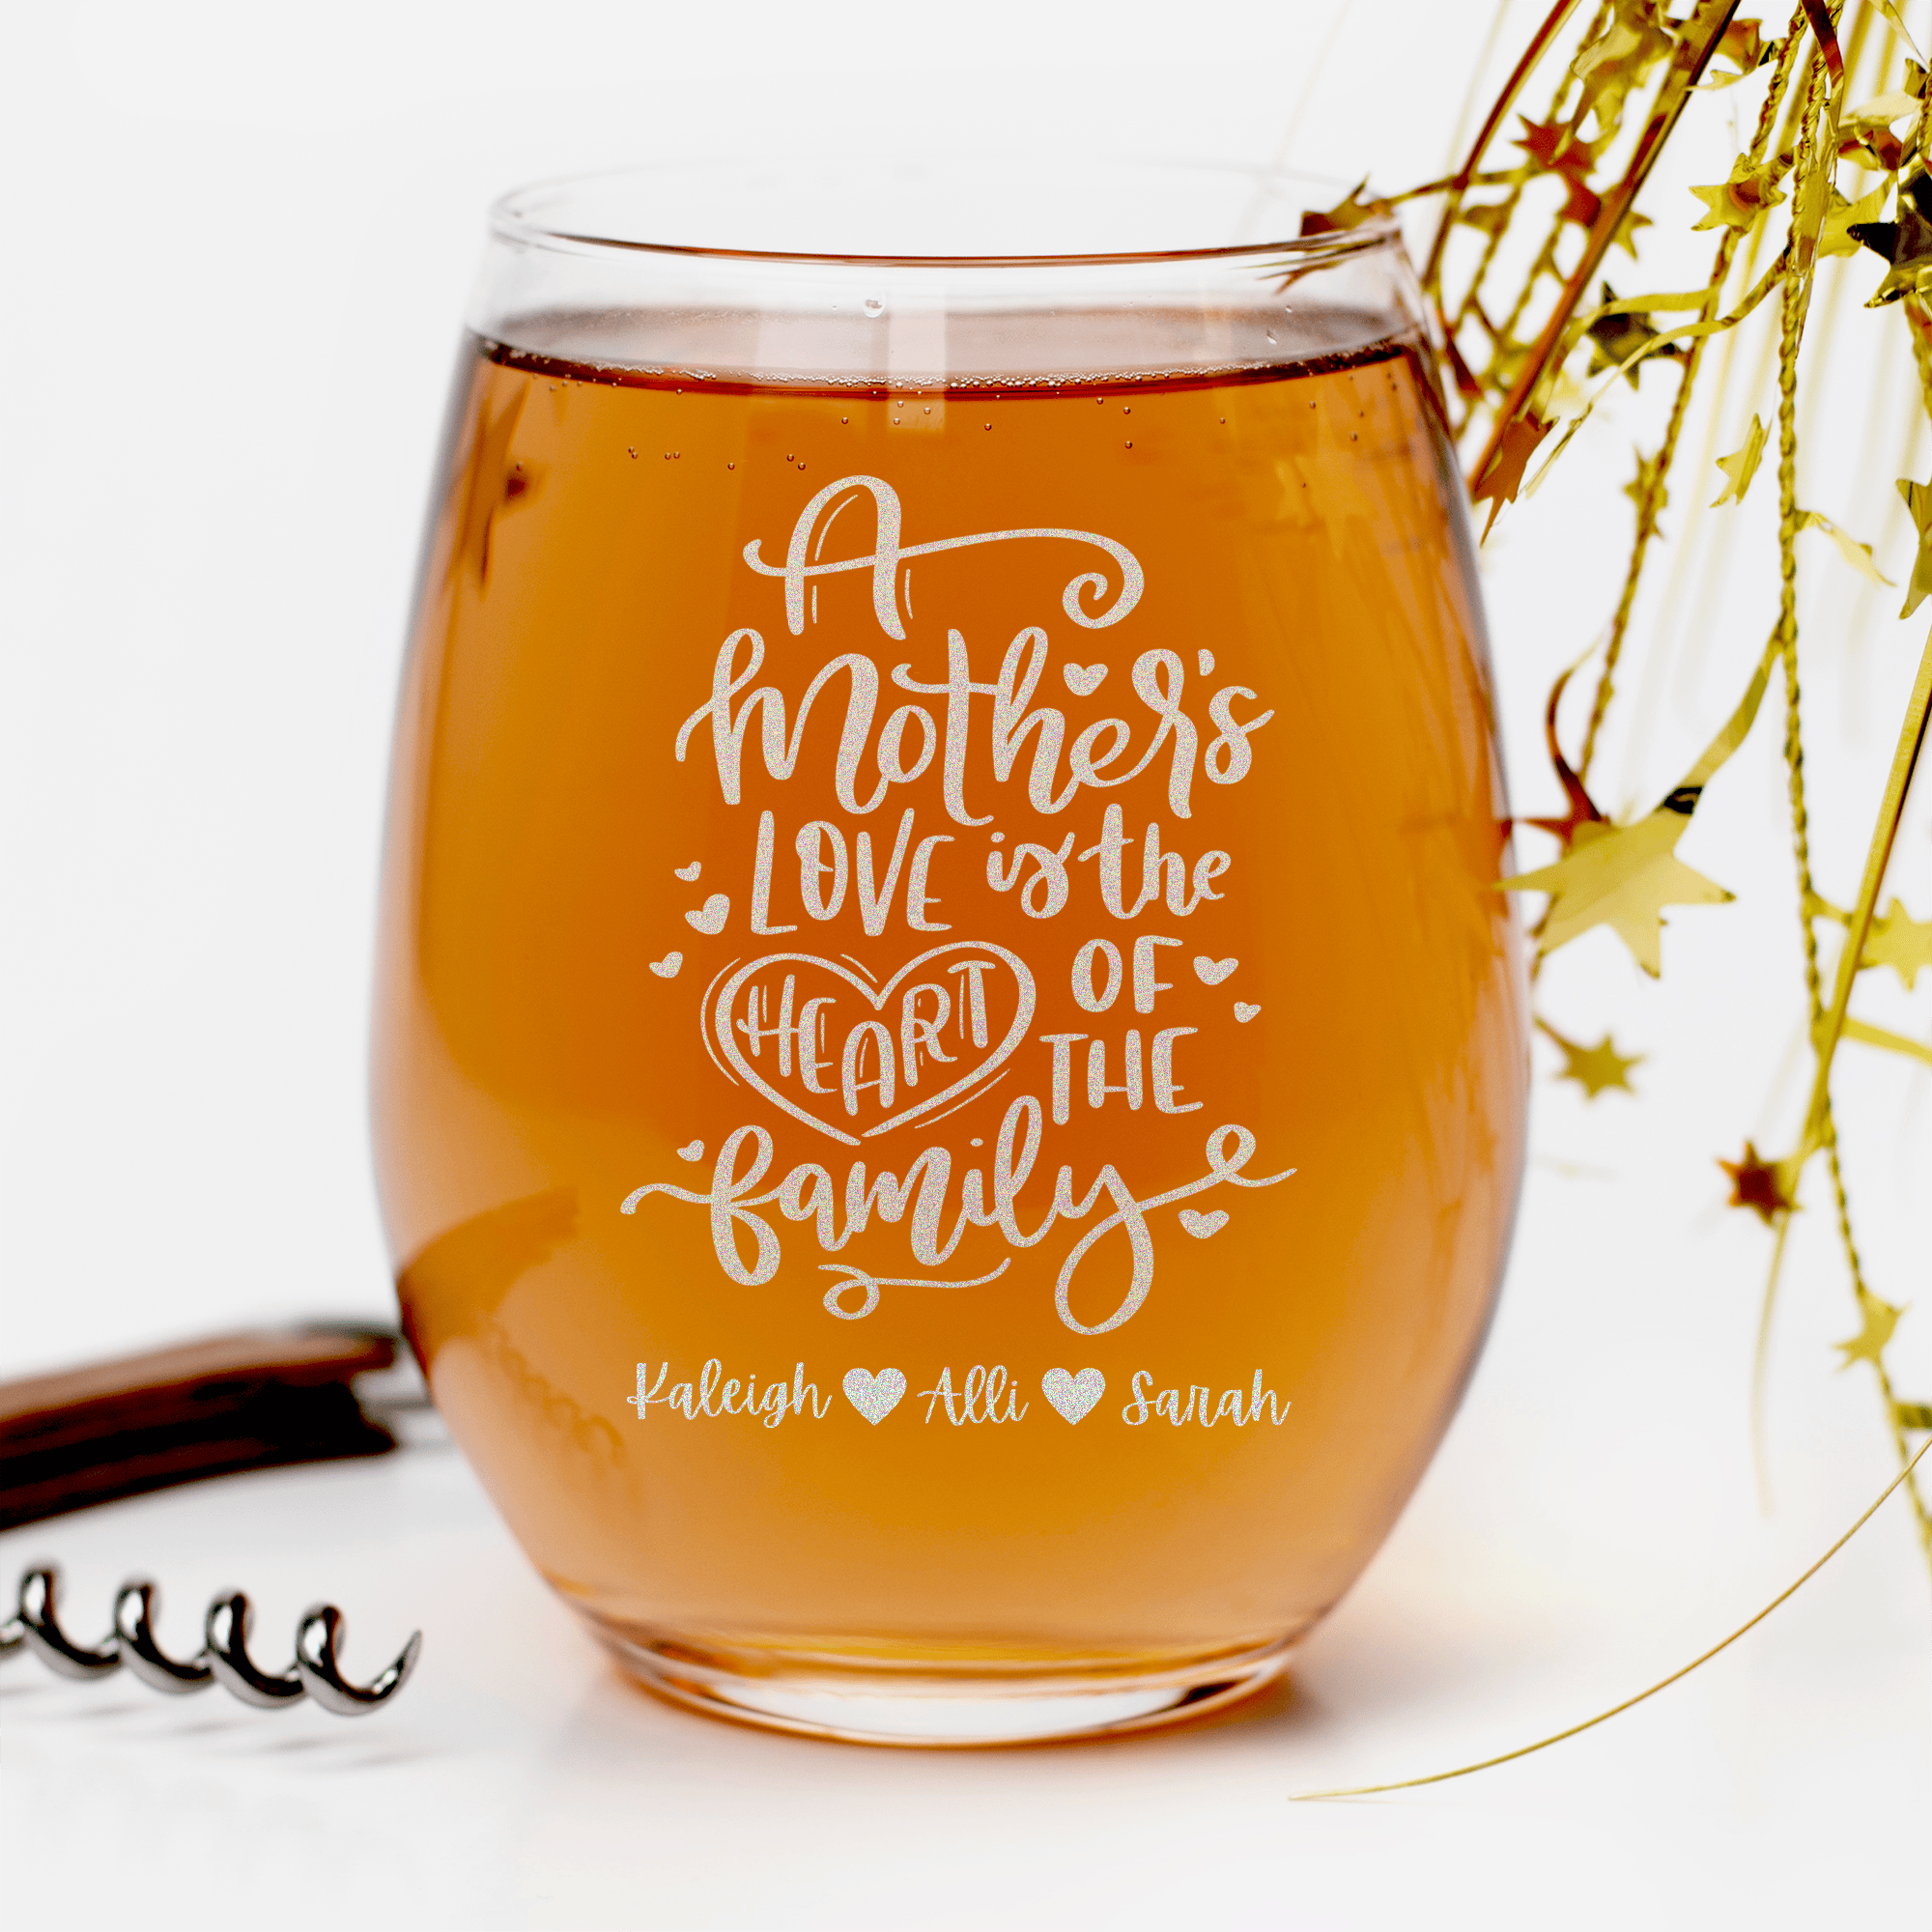 A
Mother's
LOVE is the
HEART OF
THE
family
Kaleigh ♥ Alli ♥ Sarah